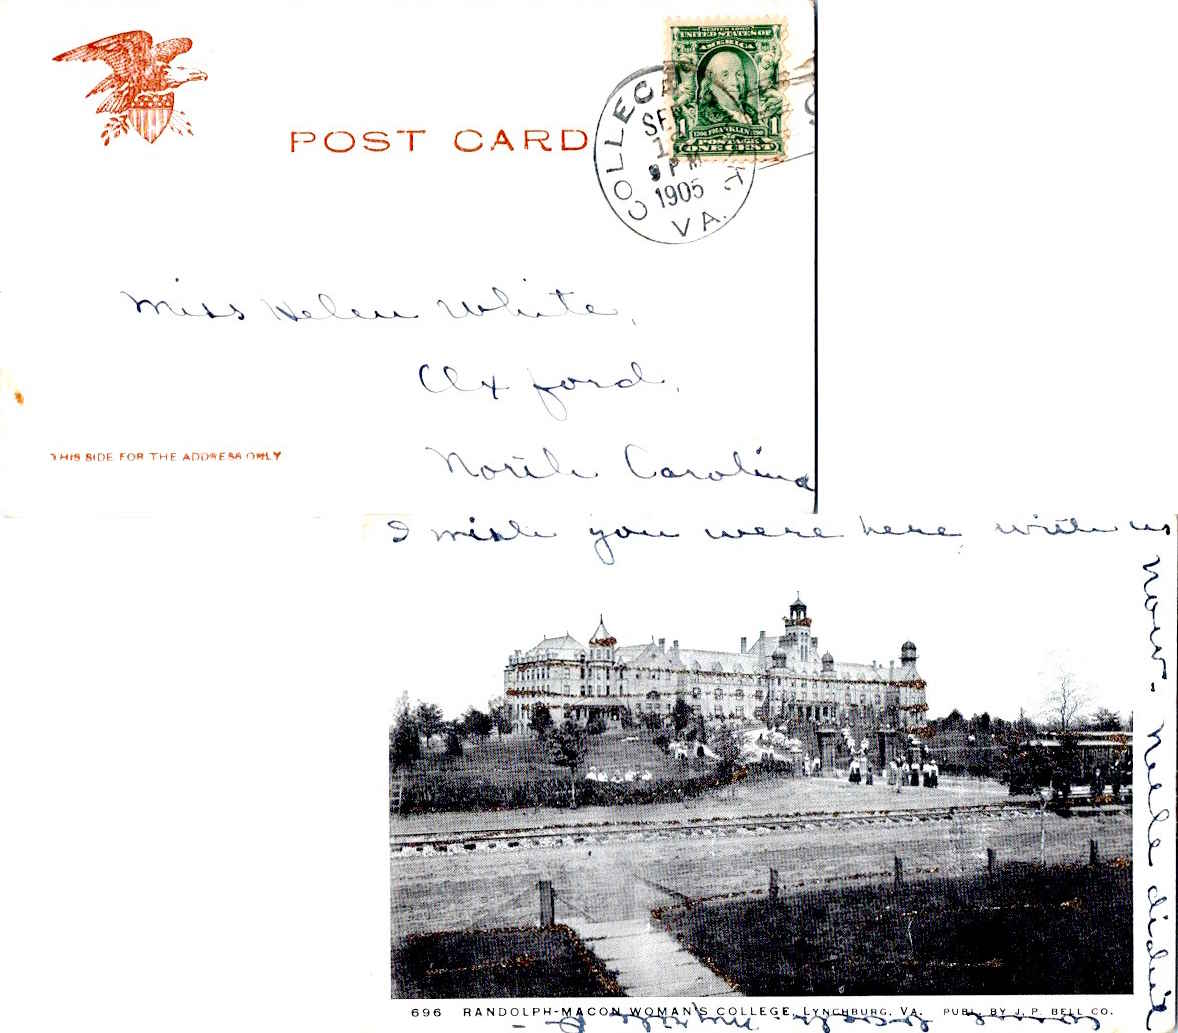 POST CARD
SERIES 1902
UNITED STATES OF
AMERICA
1 FRANKLIN 1
POSTAGE
ONE CENT
COLLEGE PARK
SEP
9 PM
1905
VA.
Miss Helen White,
Oxford,
North Carolina
THIS SIDE FOR THE ADDRESS ONLY
I wish you were here with us
now - Nelle didn't
come back.
696 RANDOLPH-MACON WOMAN'S COLLEGE, LYNCHBURG, VA. PUBL. BY J. P. BELL CO.